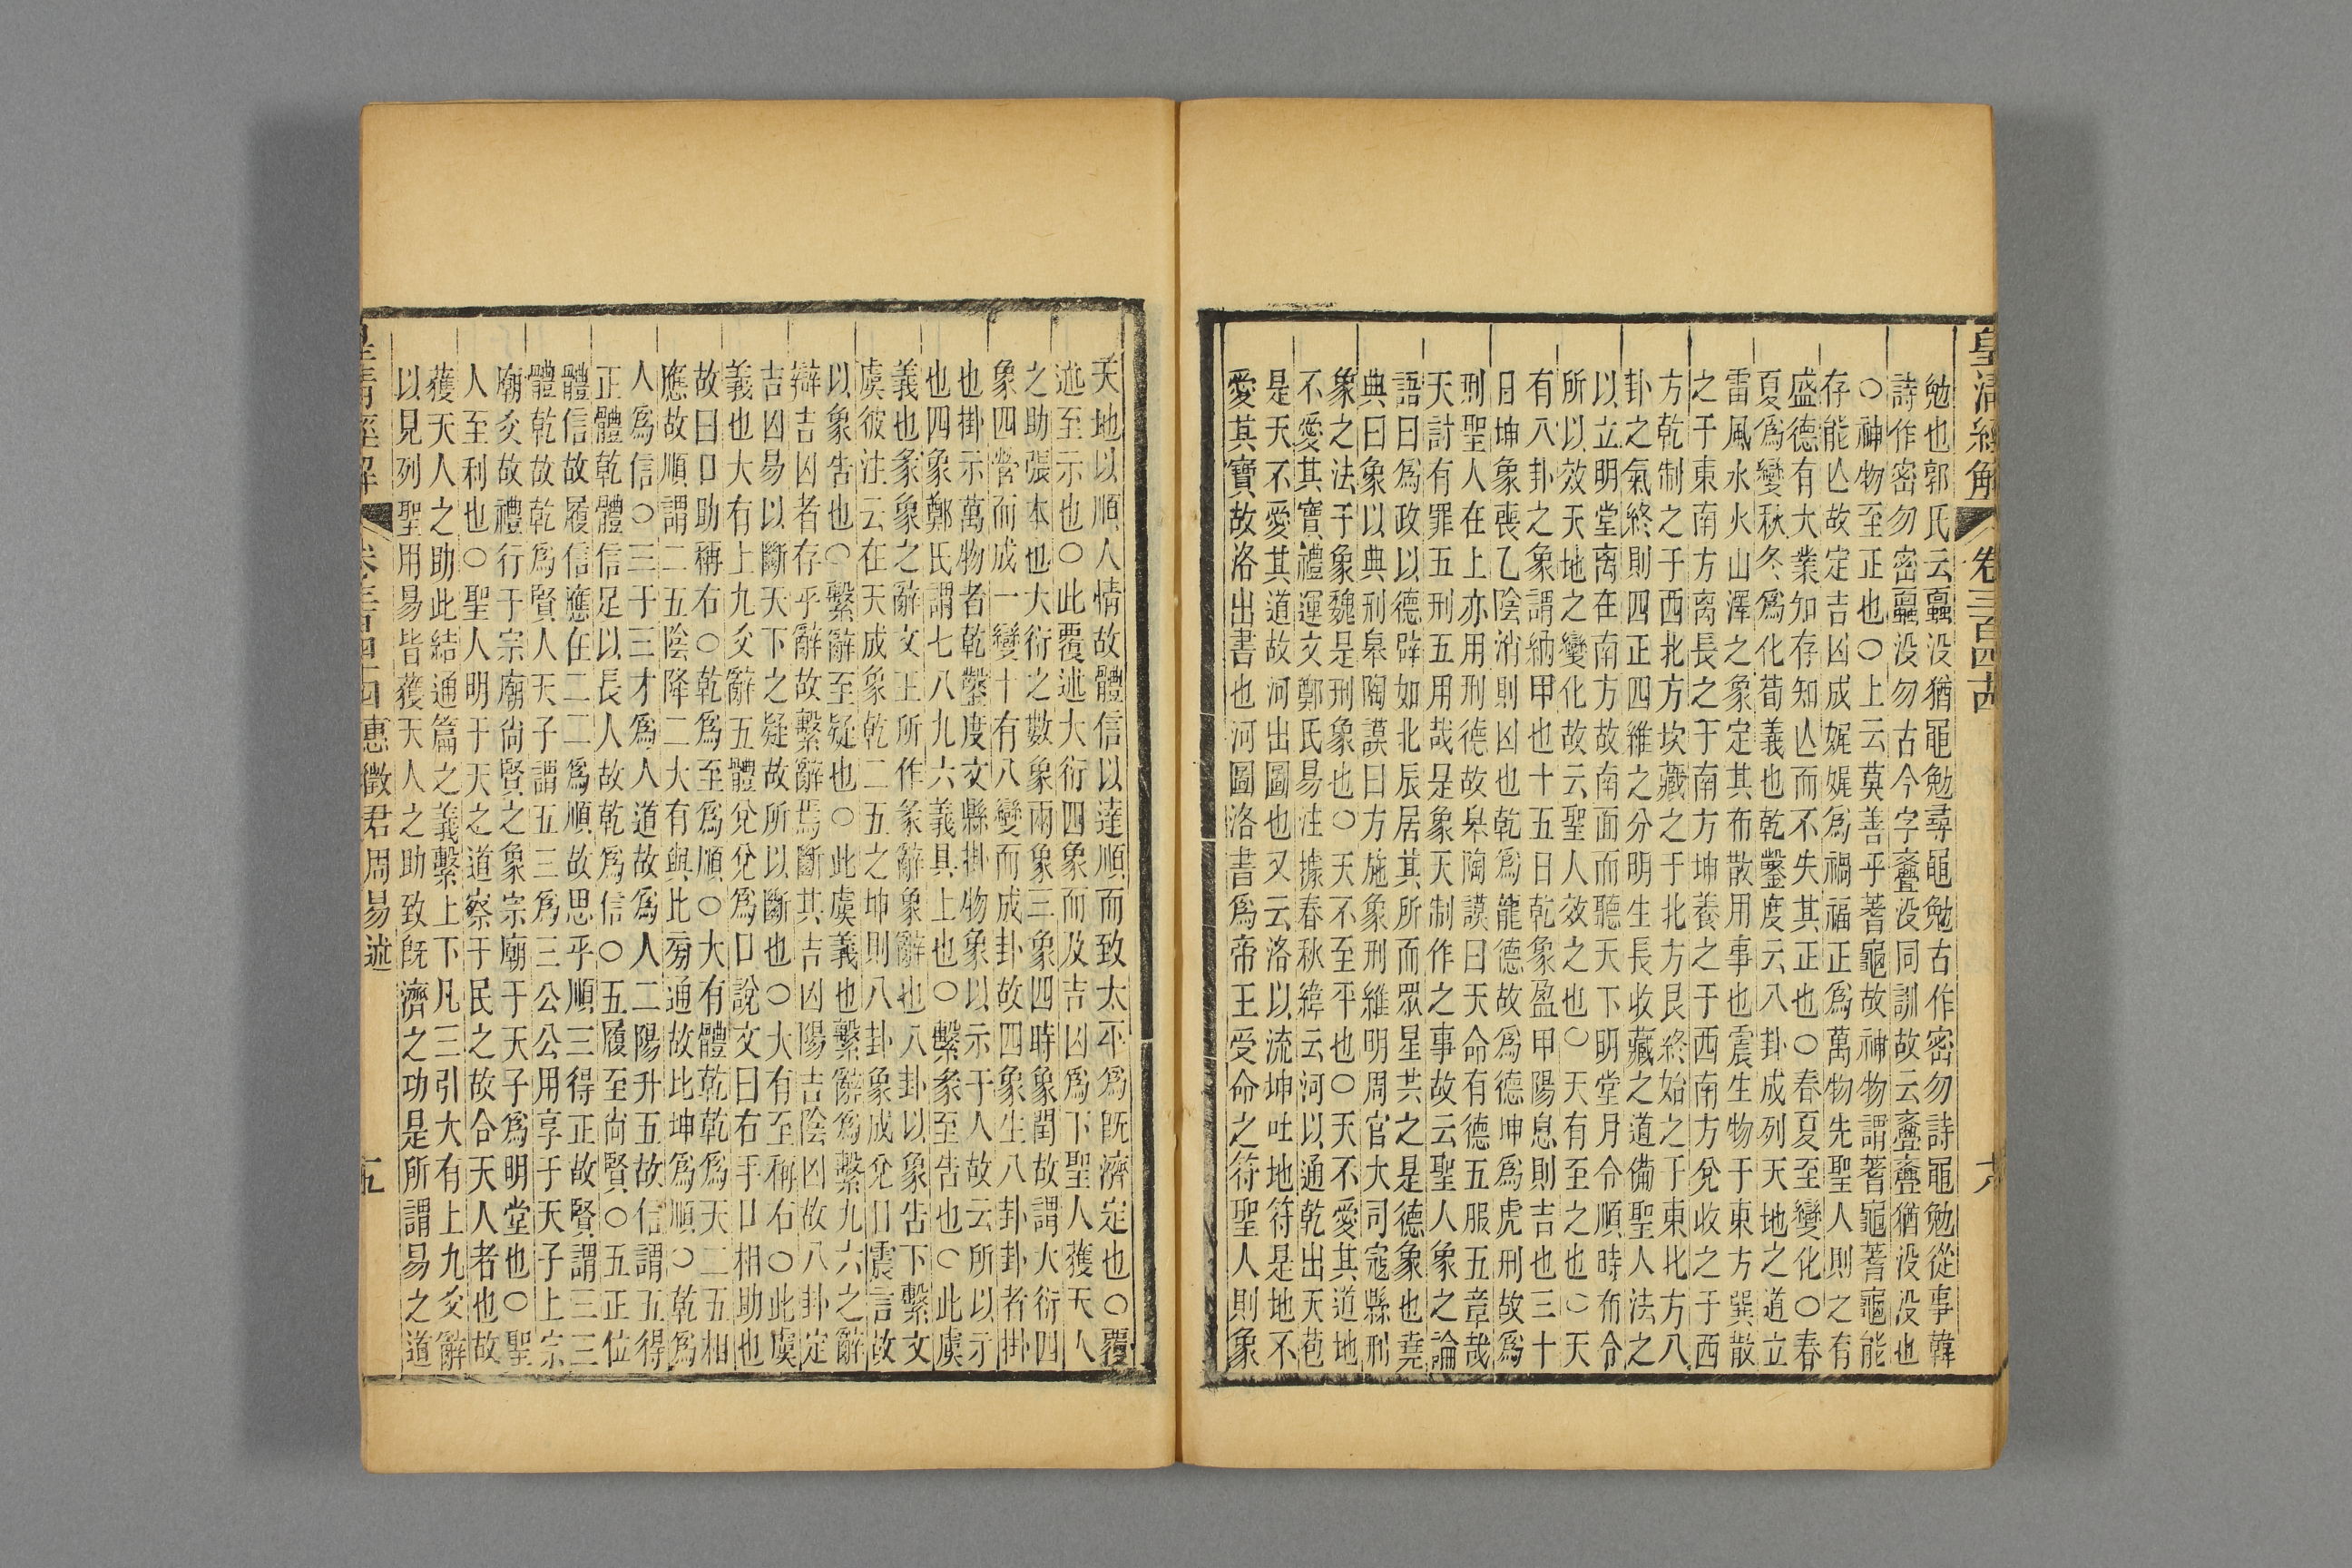 皇清經解
卷三百四十四
六
勉也郭氏云蠠没猶黽勉尋黽勉古作密勿詩黽勉從事韓
詩作密勿密蠠没勿古今字亹没同訓故云亹亹猶没没也
○神物至正也○上云莫善乎蓍龜故神物謂蓍龜蓍龜能
存能亾故定吉凶成娓娓爲禍福正爲萬物先聖人則之有
盛德有大業知存知亾而不失其正也○春夏至變化○春
夏爲變秋冬爲化荀義也乾鑿度云八卦成列天地之道立
雷風水火山澤之象定其布散用事也震生物于東方巽散
之于東南方离長之于南方坤養之于西南方兌收之于西
方乾制之于西北方坎藏之于北方艮終始之于東北方八
卦之氣終則四正四維之分明生長收藏之道備聖人法之
以立明堂离在南方故南面而聽天下明堂月令順時布令
所以效天地之變化故云聖人效之也○天有至之也○天
有八卦之象謂納甲也十五日乾象盈甲陽息則吉也三十
日坤象喪乙陰消則凶也乾爲龍德故爲德坤爲虎刑故爲
刑聖人在上亦用刑德故臯陶謨曰天命有德五服五章哉
天討有罪五刑五用哉是象天制作之事故云聖人象之論
語曰爲政以德辟如北辰居其所而眾星共之是德象也堯
典曰象以典刑臯陶謨曰方施象刑維明周官大司寇縣刑
象之法于象魏是刑象也○天不至平也○天不愛其道地
不愛其寶禮運文鄭氏易注據春秋緯云河以通乾出天苞
是天不愛其道故河出圖也又云洛以流坤吐地符是地不
愛其寶故洛出書也河圖洛書爲帝王受命之符聖人則象
天地以順人情故體信以達順而致太平爲旣濟定也○覆
述至示也○此覆述大衍四象而及吉凶爲下聖人獲天人
之助張本也大衍之數象兩象三象四時象閏故謂大衍四
象四營而成一變十有八變而成卦故四象生八卦卦者掛
也掛示萬物者乾鑿度文縣掛物象以示于人故云所以示
也四象鄭氏謂七八九六義具上也○繫彖至告也○此虞
義也彖象之辭文王所作彖辭象辭也八卦以象告下繫文
虞彼注云在天成象乾二五之坤則八卦象成兌口震言故
以象告也○繫辭至疑也○此虞義也繫辭爲繫九六之辭
辯吉凶者存乎辭故繫辭焉斷其吉凶陽吉陰凶故八卦定
吉凶易以斷天下之疑故所以斷也○大有至稱右○此虞
義也大有上九爻辭五體兌兌爲口說文曰右手口相助也
故曰口助稱右○乾爲至爲順○大有體乾乾爲天二五相
應故順謂二五陰降二大有與比旁通故比坤爲順○乾爲
人爲信○三于三才爲人道故爲人二陽升五故信謂五得
正體乾體信足以長人故乾爲信○五履至尙賢○五正位
體信故履信應在二二爲順故思乎順三得正故賢謂三三
體乾故乾爲賢人天子謂五三爲三公公用享于天子上宗
廟爻故禮行于宗廟尙賢之象宗廟于天子爲明堂也○聖
人至利也○聖人明于天之道察于民之故合天人者也故
獲天人之助此結通篇之義繫上下凡三引大有上九爻辭
以見列聖用易皆獲天人之助致旣濟之功是所謂易之道
皇清經解
卷三百四十四
惠徵君周易述
五